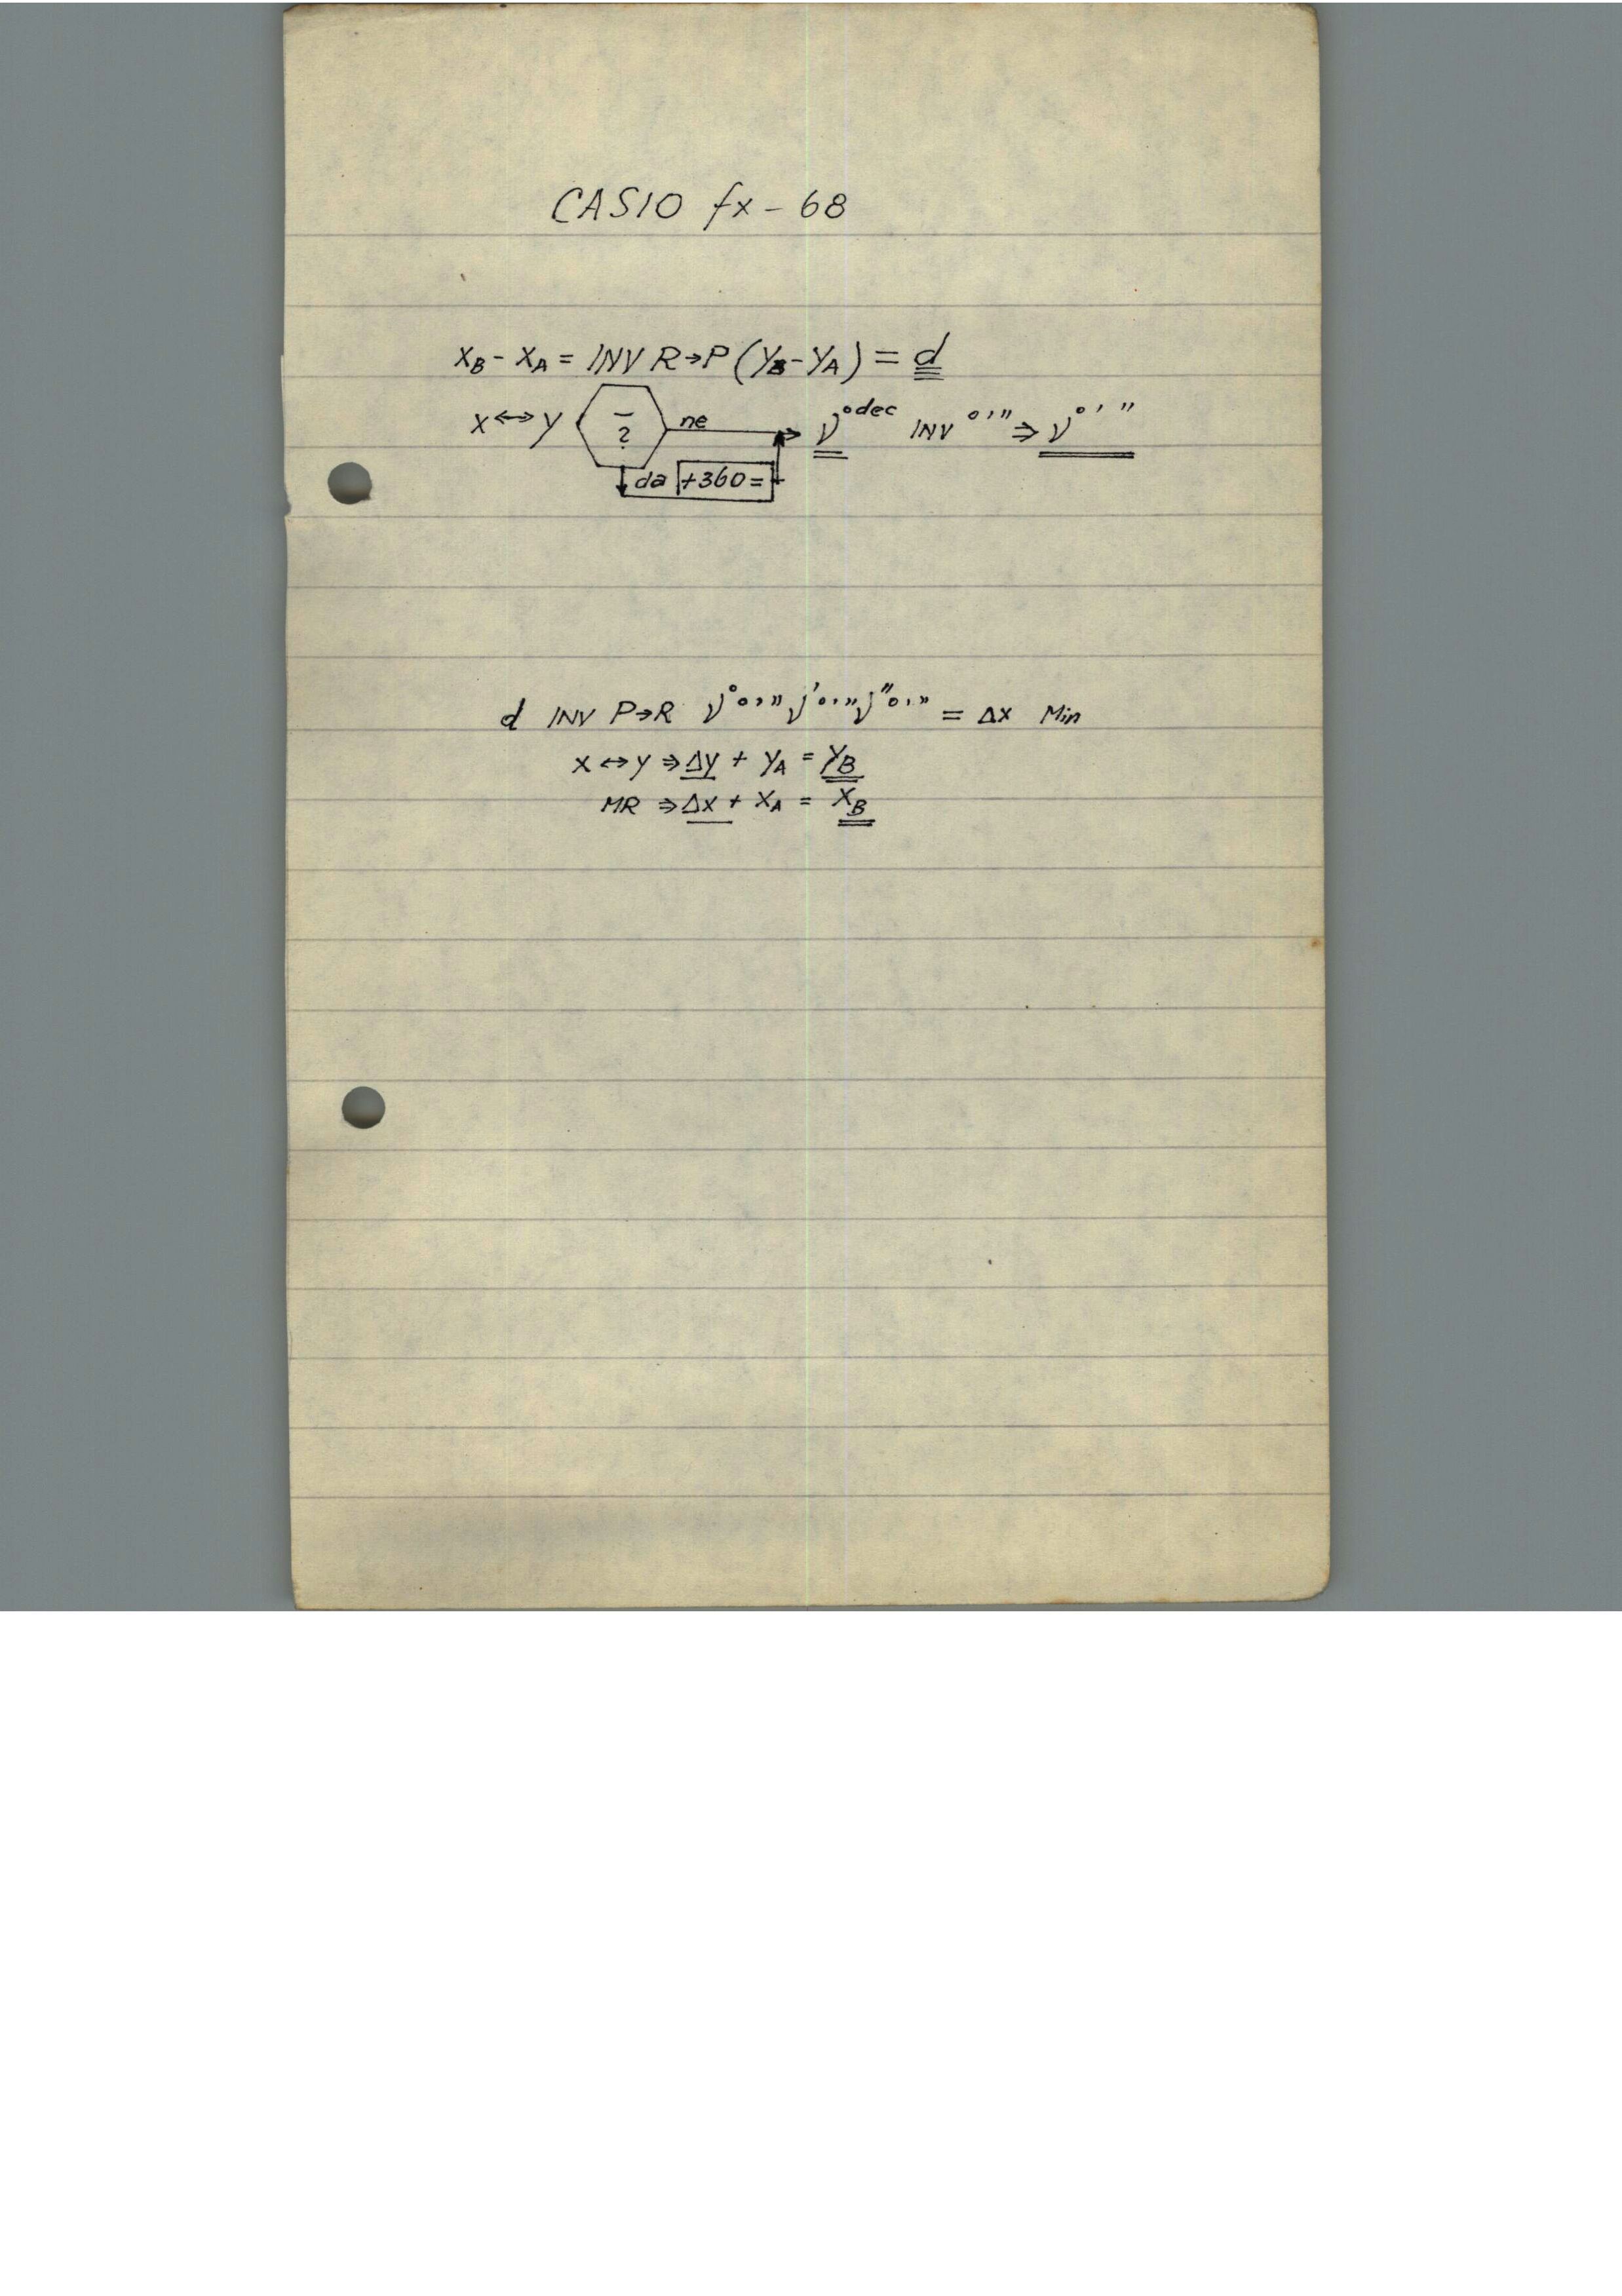 CASIO fx-68
X_B - X_A = INV R→P (Y_B - Y_A) = d
X↔Y − ? ne ν°dec INV °'" ⇒ ν°'"
da +360=
d INV P→R ν° °'" ν' °'" ν" °'" = Δx Min
X↔Y ⇒ Δy + Y_A = Y_B
MR ⇒ Δx + X_A = X_B